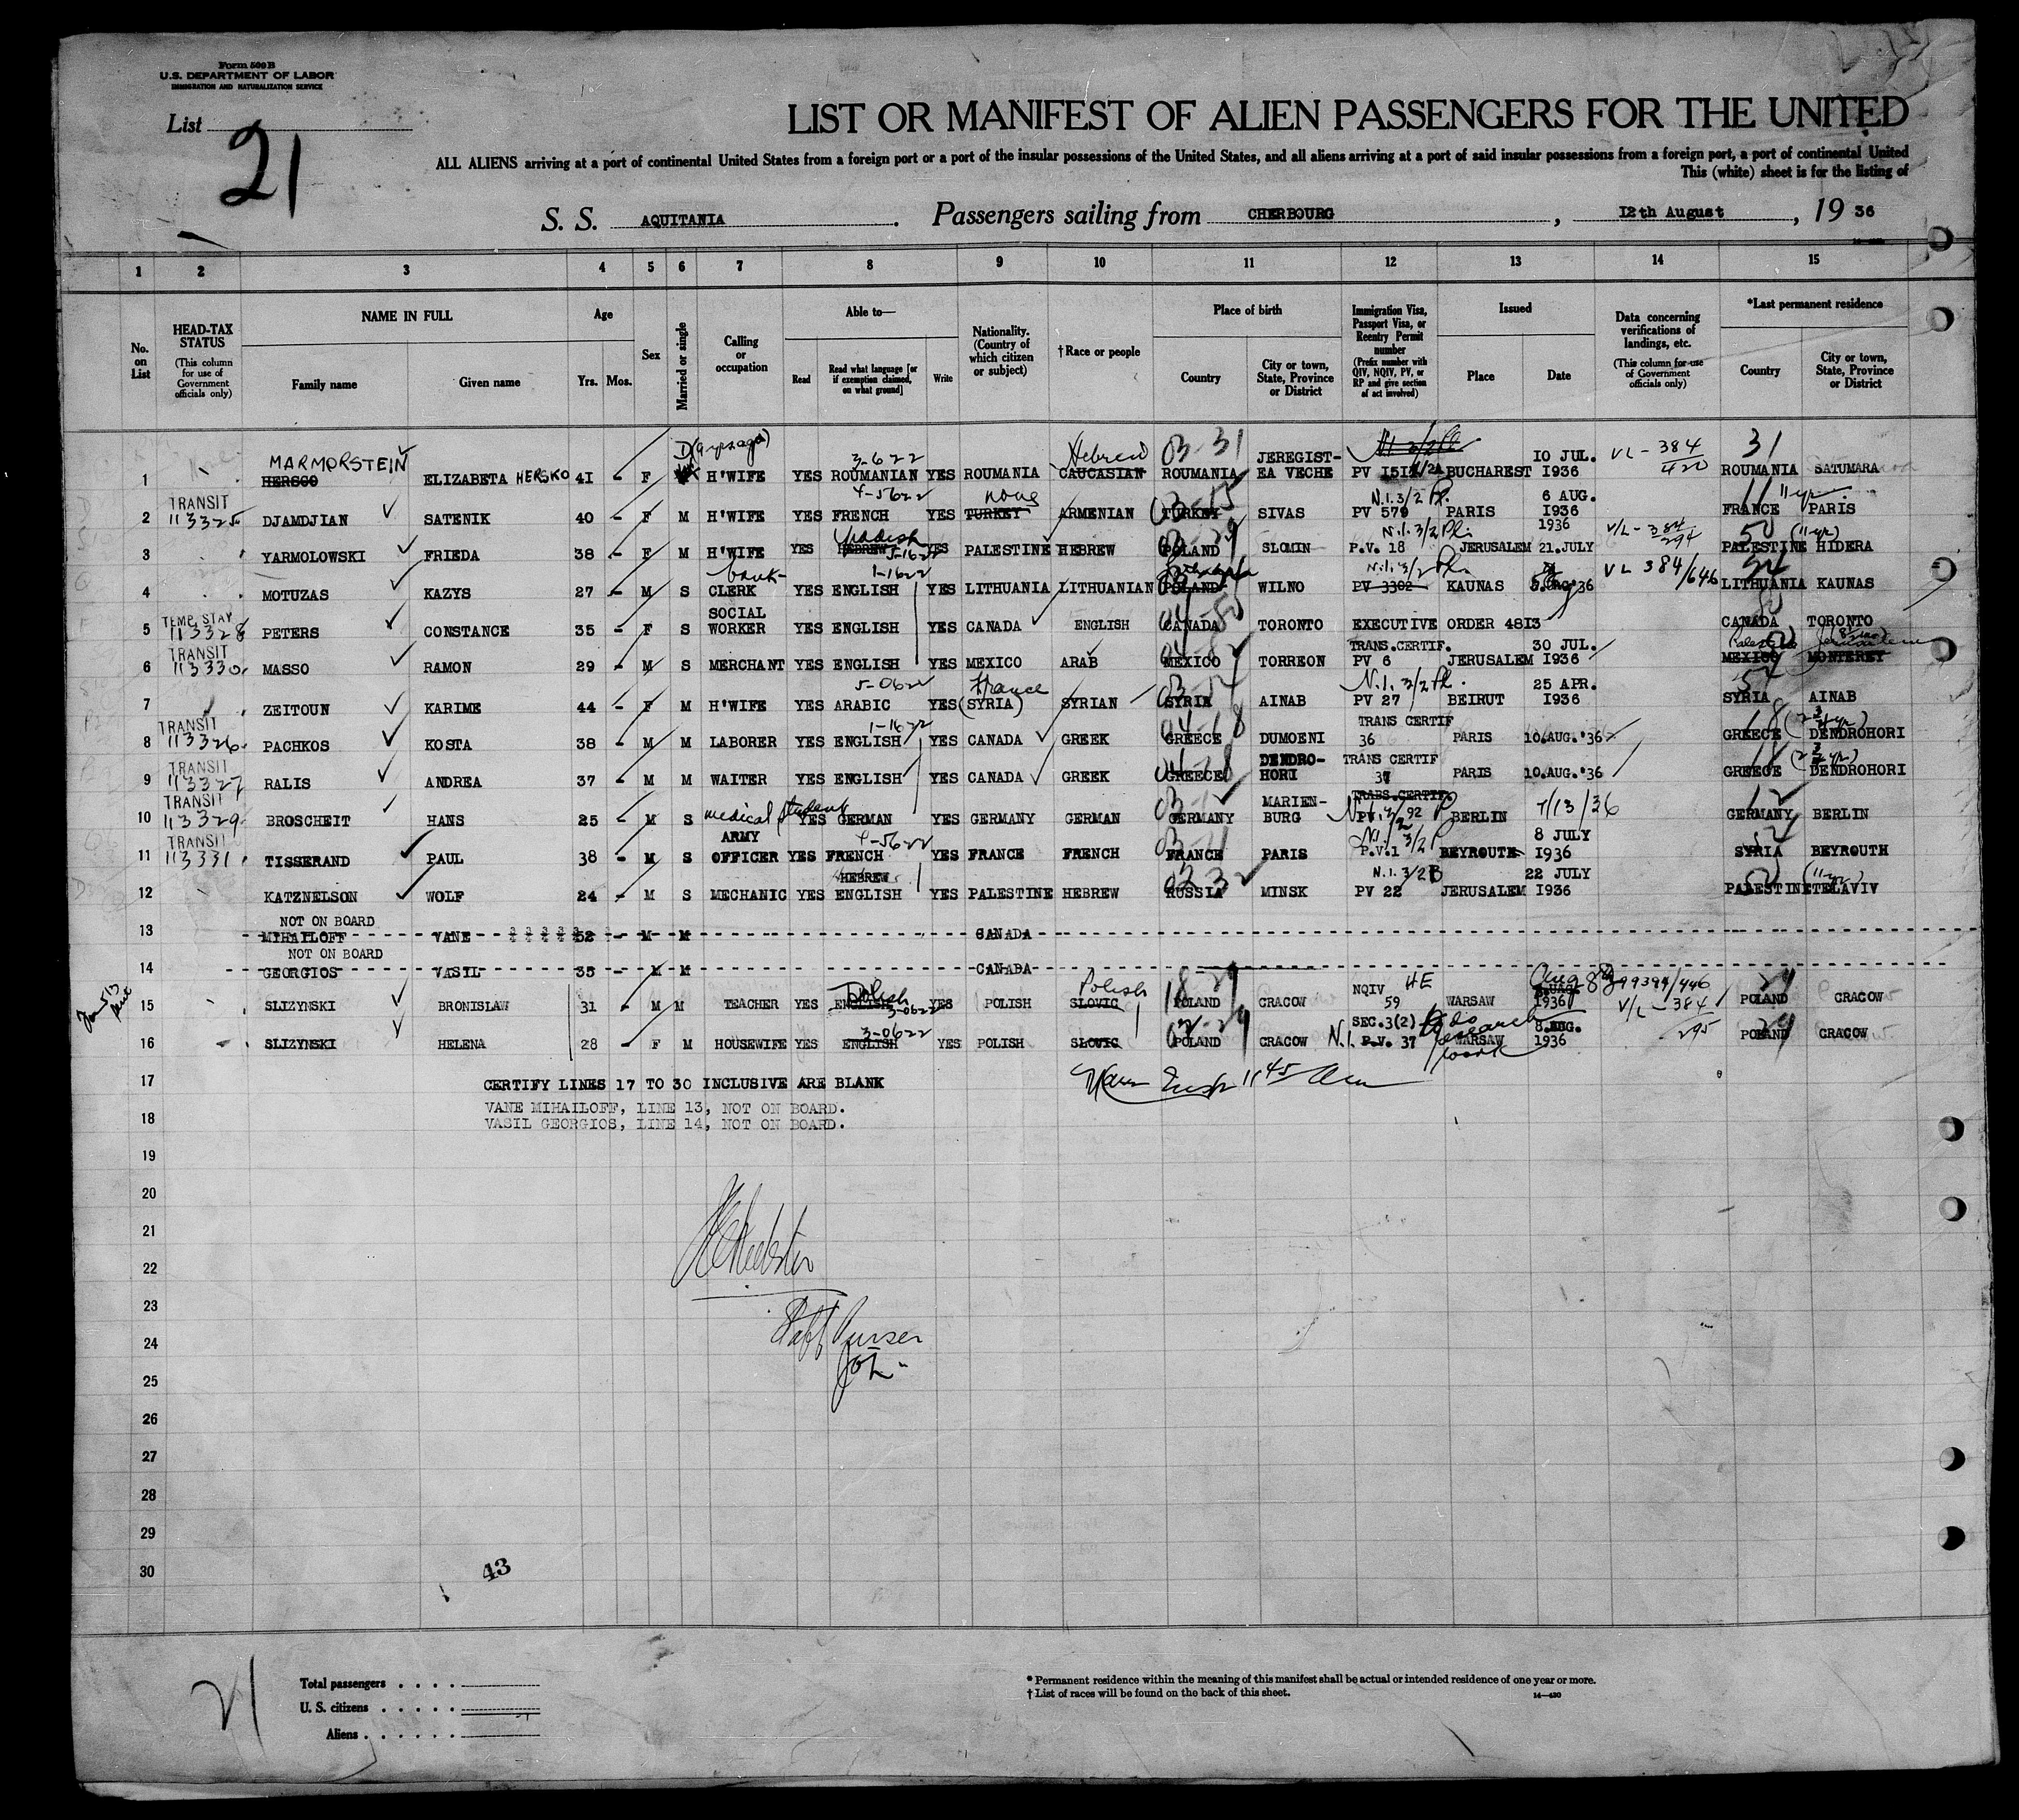 Form 500 B
U.S. DEPARTMENT OF LABOR
IMMIGRATION AND NATURALIZATION SERVICE
List 21
LIST OR MANIFEST OF ALIEN PASSENGERS FOR THE UNITED
ALL ALIENS arriving at a port of continental United States from a foreign port or a port of the insular possessions of the United States, and all aliens arriving at a port of said insular possessions from a foreign port, a port of continental United
This (white) sheet is for the listing of
S. S. AQUITANIA. Passengers sailing from CHERBOURG, 12th August, 19 36
1 2 3 4 5 6 7 8 9 10 11 12 13 14 15
No. on List
HEAD-TAX STATUS (This column for use of Government officials only)
NAME IN FULL Family name Given name
Age Yrs. Mos.
Sex
Married or single
Calling or occupation
Able to— Read Read what language [or if exemption claimed, on what ground] Write
Nationality. (Country of which citizen or subject)
† Race or people
Place of birth Country City or town, State, Province or District
Immigration Visa, Passport Visa, or Reentry Permit number (Prefix number with QIV, NQIV, PV, or RP and give section of act involved)
Issued Place Date
Data concerning verifications of landings, etc. (This column for use of Government officials only)
*Last permanent residence Country City or town, State, Province or District
MARMORSTEIN 3-622 Hebrew 03-31 JEREGIST- 10 JUL. VL-384 31
1 HERSCO ELIZABETA HERSKO 41 - F H'WIFE YES ROUMANIAN YES ROUMANIA CAUCASIAN ROUMANIA EA VECHE PV BUCHAREST 1936 420 ROUMANIA SATUMARA
TRANSIT 4-5622 none N.I.3/2 6 AUG. 11 yr
2 113325 DJAMDJIAN SATENIK 40 - F M H'WIFE YES FRENCH YES TURKEY ARMENIAN TURKEY SIVAS PV 579 PARIS 1936 FRANCE PARIS
Yiddish 5-1622 N.I.3/2 1936 V/L-384/294 50 (11 yr)
3 YARMOLOWSKI FRIEDA 38 - F M H'WIFE YES HEBREW YES PALESTINE HEBREW POLAND SLOMIN P.V. 18 JERUSALEM 21.JULY PALESTINE HIDERA
bank- 1-1622 N.I.3/2 VL 384/646
4 MOTUZAS KAZYS 27 - M S CLERK YES ENGLISH YES LITHUANIA LITHUANIAN POLAND WILNO PV 3302 KAUNAS LITHUANIA KAUNAS
TEMP. STAY SOCIAL 04-80 80
5 113328 PETERS CONSTANCE 35 - F S WORKER YES ENGLISH YES CANADA ENGLISH CANADA TORONTO EXECUTIVE ORDER 4813 CANADA TORONTO
TRANSIT TRANS.CERTIF. 30 JUL. Palestine Jerusalem
6 113330 MASSO RAMON 29 - M S MERCHANT YES ENGLISH YES MEXICO ARAB MEXICO TORREON PV 6 JERUSALEM 1936 MEXICO MONTEREY
5-0622 France N.I. 3/2 25 APR. 54
7 ZEITOUN KARIME 44 - F M H'WIFE YES ARABIC YES (SYRIA) SYRIAN SYRIA AINAB PV 27 BEIRUT 1936 SYRIA AINAB
TRANSIT 1-1622 04-18 TRANS CERTIF 18
8 113326 PACHKOS KOSTA 38 - M M LABORER YES ENGLISH YES CANADA GREEK GREECE DUMOENI 36 PARIS 10.AUG.'36 GREECE DENDROHORI
TRANSIT 04-18 DENDRO- TRANS CERTIF 18
9 113327 RALIS ANDREA 37 - M M WAITER YES ENGLISH YES CANADA GREEK GREECE HORI 37 PARIS 10.AUG.'36 GREECE DENDROHORI
TRANSIT medical student MARIEN- TRANS.CERTIF. 12
10 113329 BROSCHEIT HANS 25 - M S YES GERMAN YES GERMANY GERMAN GERMANY BURG BERLIN 7/13/36 GERMANY BERLIN
TRANSIT ARMY 4-5622 03-11 N.I. 3/2 8 JULY 54
11 113331 TISSERAND PAUL 38 - M S OFFICER YES FRENCH YES FRANCE FRENCH FRANCE PARIS P.V.1 BEYROUTH 1936 SYRIA BEYROUTH
HEBREW N.I. 3/2 B 22 JULY 50 (11 yr)
12 KATZNELSON WOLF 24 - M S MECHANIC YES ENGLISH YES PALESTINE HEBREW RUSSIA MINSK PV 22 JERUSALEM 1936 PALESTINE TELAVIV
NOT ON BOARD
13 MIHAILOFF VANE 52 - M M CANADA
NOT ON BOARD
14 GEORGIOS VASIL 35 - M M CANADA
Polish 3-0622 Polish NQIV HE Aug 8 99399/446 29
15 SLIZYNSKI BRONISLAW 31 - M M TEACHER YES ENGLISH YES POLISH SLOVIC POLAND CRACOW 59 WARSAW 1936 V/L-384 POLAND CRACOW
3-0622 SEC.3(2) to do research work 8.AUG. 295 29
16 SLIZYNSKI HELENA 28 - F M HOUSEWIFE YES ENGLISH YES POLISH SLOVIC POLAND CRACOW N.I. P.V. 37 WARSAW 1936 POLAND CRACOW
17 CERTIFY LINES 17 TO 30 INCLUSIVE ARE BLANK
VANE MIHAILOFF, LINE 13, NOT ON BOARD.
18 VASIL GEORGIOS, LINE 14, NOT ON BOARD.
19
20
21
22
23
24 Staff Purser
25
26
27
28
29
30 43
21
Total passengers
U. S. citizens
Aliens
* Permanent residence within the meaning of this manifest shall be actual or intended residence of one year or more.
† List of races will be found on the back of this sheet.
14—430